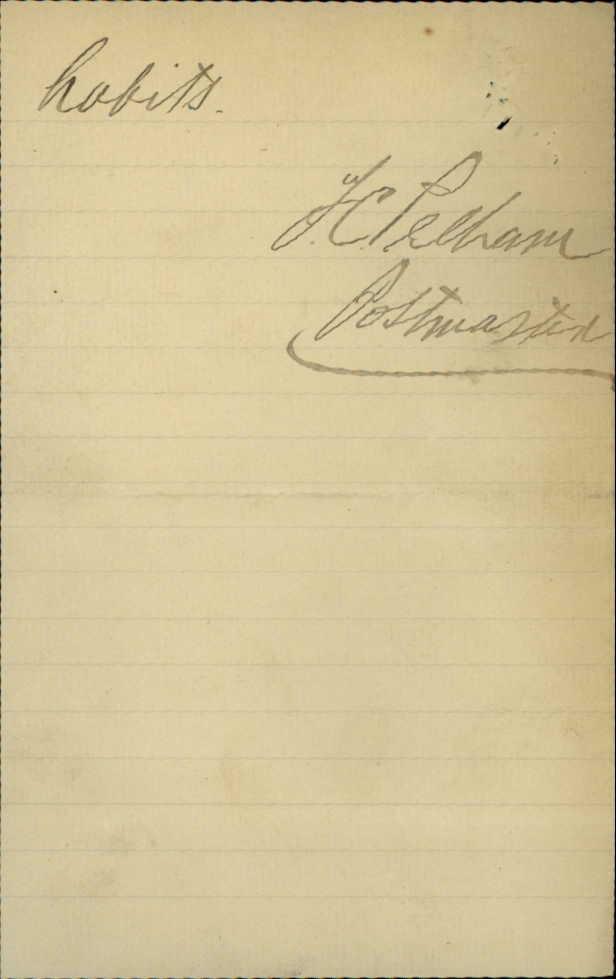 habits.
J.C. Pelham
Postmaster